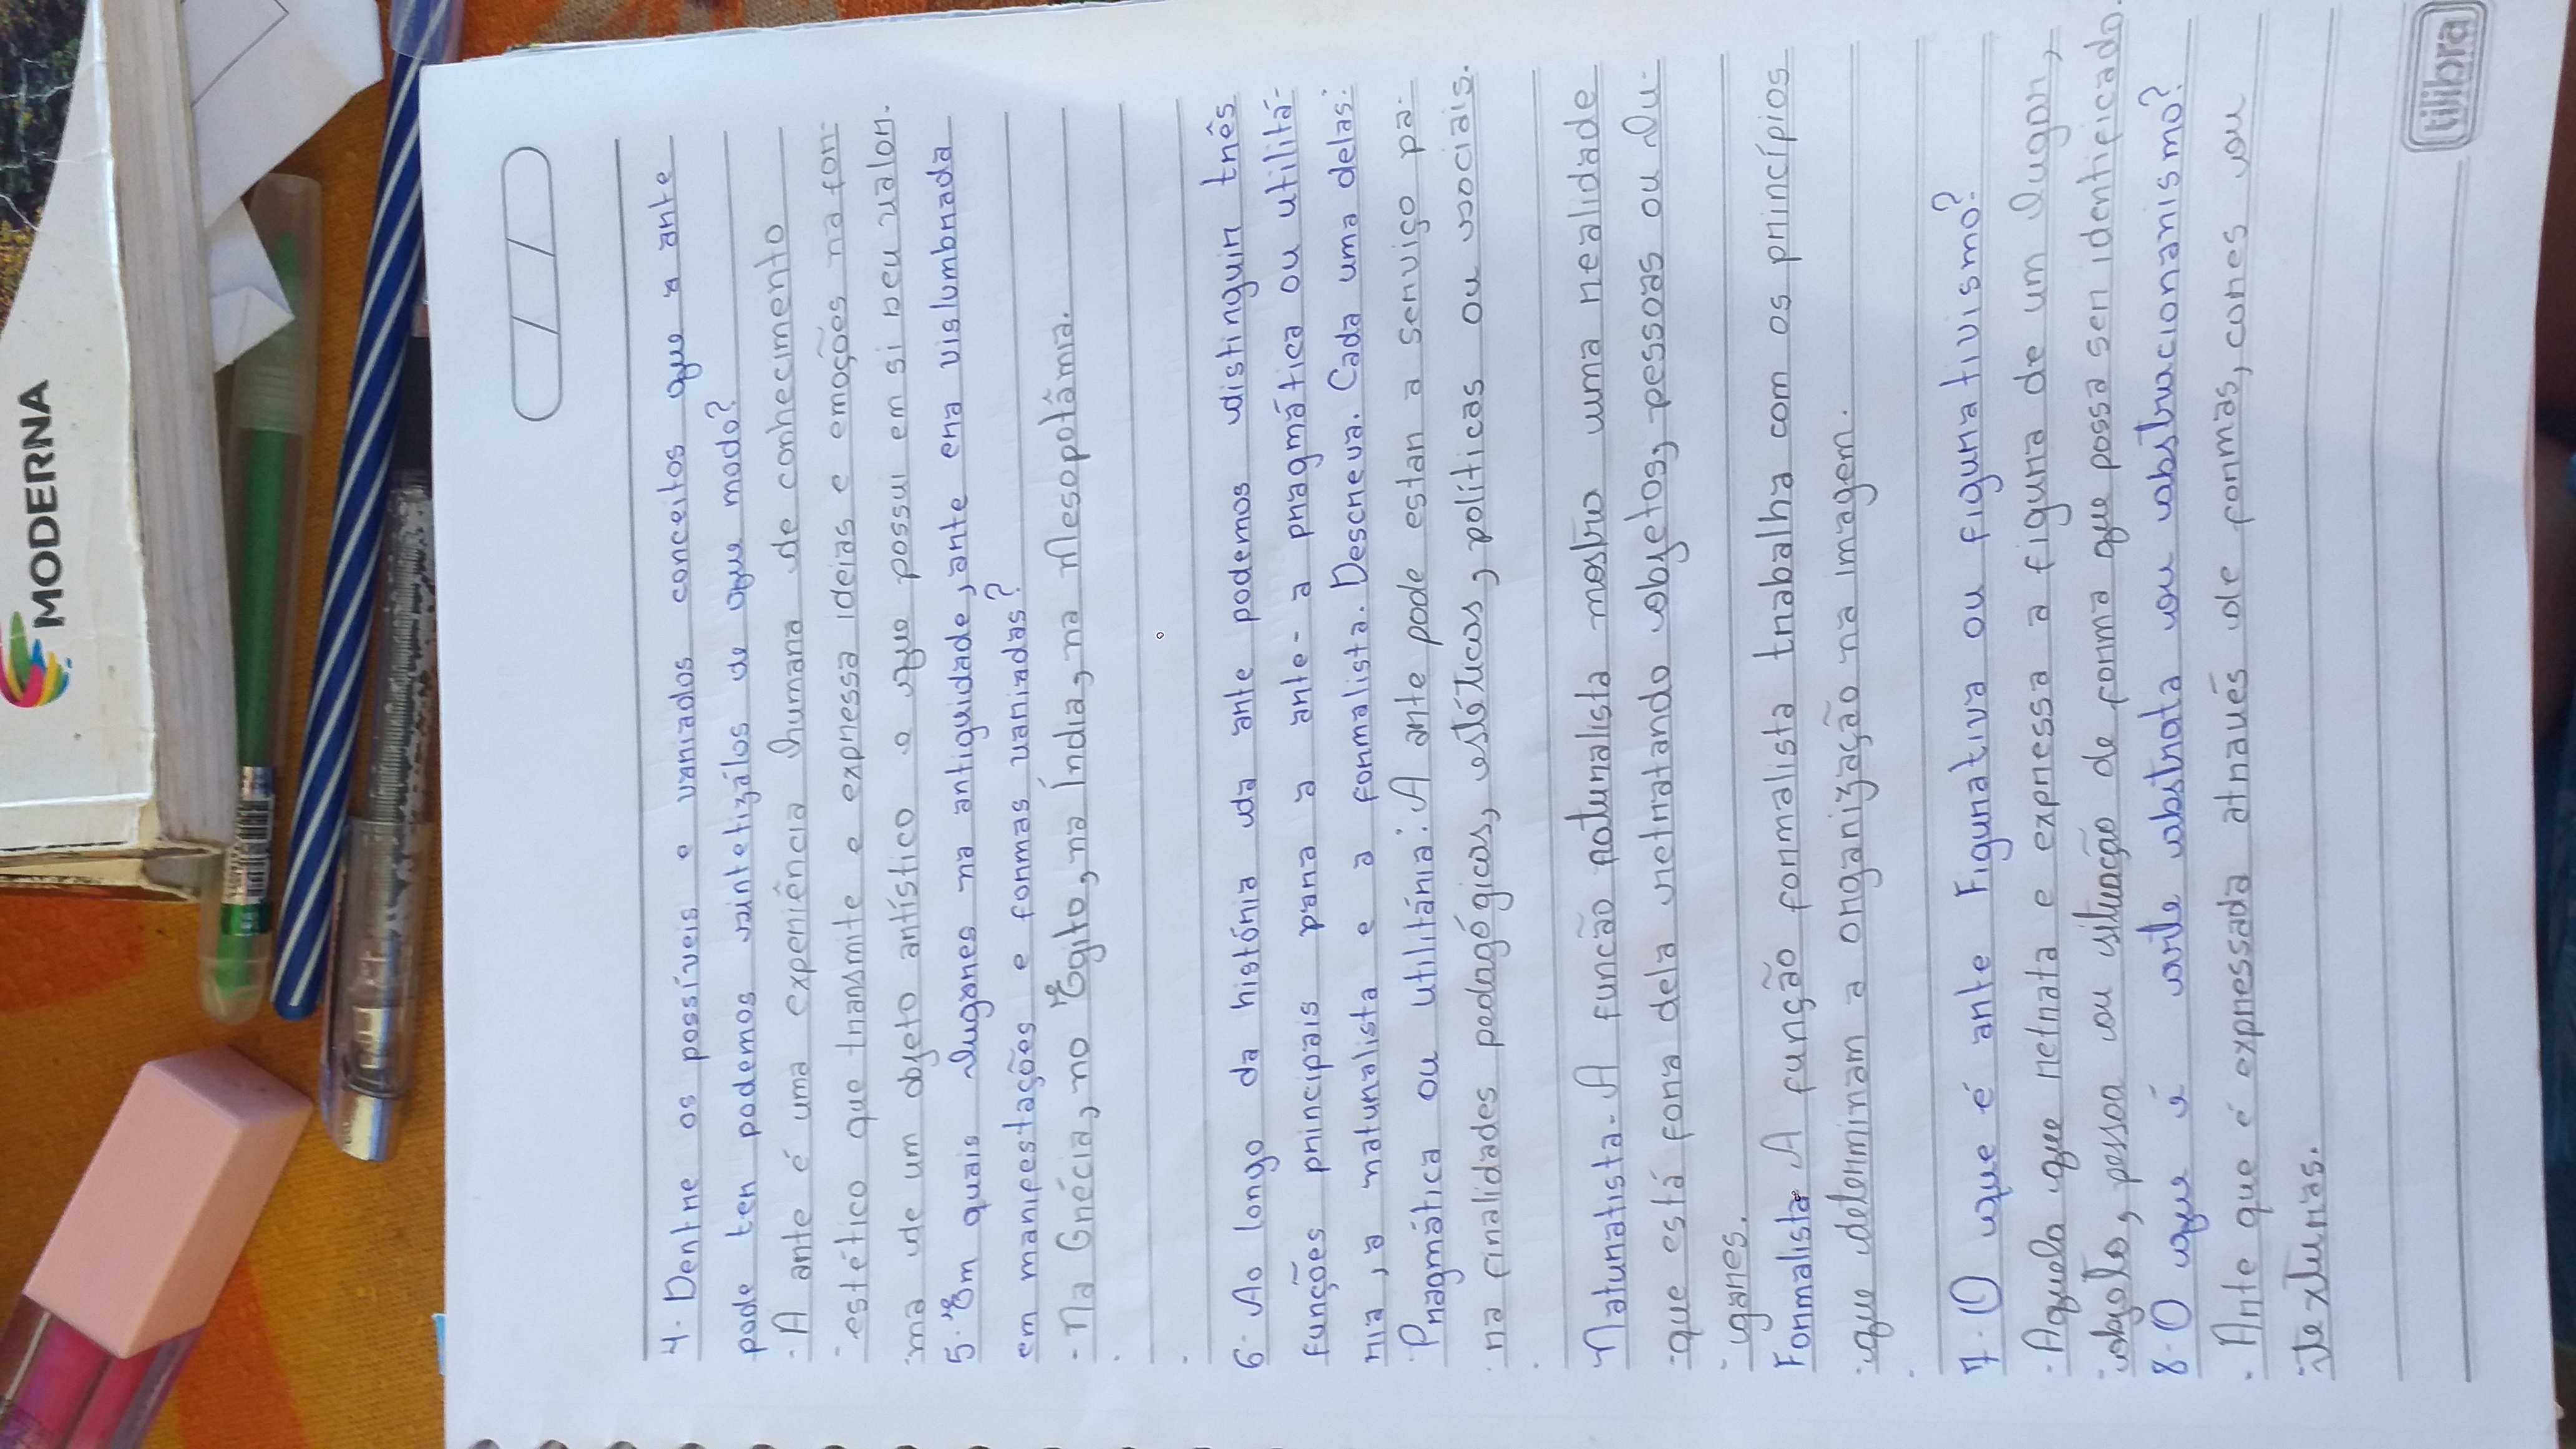 MODERNA
4. Dentre os possíveis e variados conceitos que a arte
pode ter podemos sintetizálos de que modo?
- A arte é uma experiência humana de conhecimento
estético que transmite e expressa ideias e emoções na for-
ma de um objeto artístico e que possui em si seu valor.
5. Em quais lugares na antiguidade, arte era vislumbrada
em manifestações e formas variadas?
- Na Grécia, no Egito, na Índia, na Mesopotâmia.
6- Ao longo da história da arte podemos distinguir três
funções principais para a arte- a pragmática ou utilitá-
ria, a naturalista e a formalista. Descreva. Cada uma delas:
Pragmática ou utilitária: A arte pode estar a serviço pa-
ra finalidades pedagógicas, estéticas, políticas ou sociais.
Naturatista- A funcão naturalista mostra uma realidade
que está fora dela retratando objetos, pessoas ou lu-
gares.
Formalista A função formalista trabalha com os princípios
que determinam a organização na imagem.
7. O que é arte Figurativa ou figurativismo?
- Aquela que retrata e expressa a figura de um lugar,
objeto, pessoa ou situação de forma que possa ser identificado.
8- O que é arte abstrata ou abstracionarismo?
- Arte que é expressada através de formas, cores ou
texturas.
tilibra